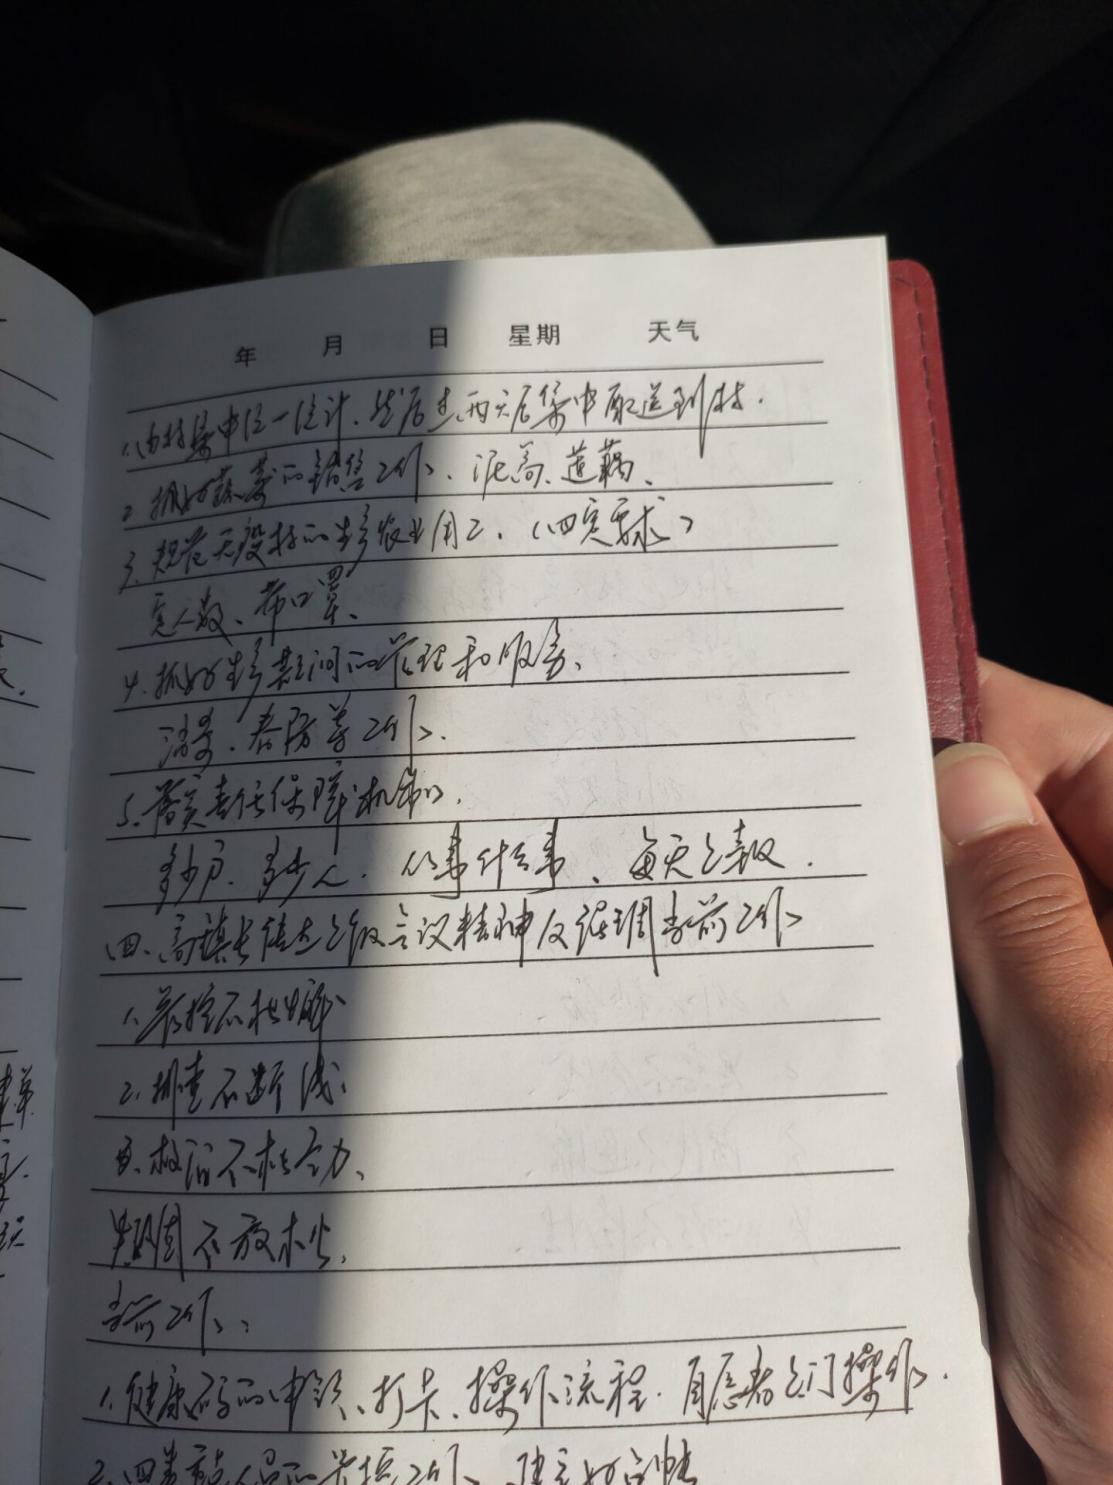 年 月 日 星期 天气
1.由村集中统一统计,然后过两天后集中配送到村.
2.抓好蔬菜的销售工作、泥蒿、莲藕、
3.规范无疫村的生产农业用工.(四定要求)
定人数、带口罩、
4.抓好生产期间的管理和服务、
消毒、春防等工作.
5.落实责任保障机制、
多少户、多少人、从事什么事、每天上报.
四、高镇长传达上级会议精神及强调当前工作
1.管控不松懈、
2.排查不断线、
3.救治不松劲、
4.巩固不放松、
当前工作:
1.健康码的申领、打卡、操作流程.自愿者上门操作.
2.四类重点人员的管控工作、建立好台帐